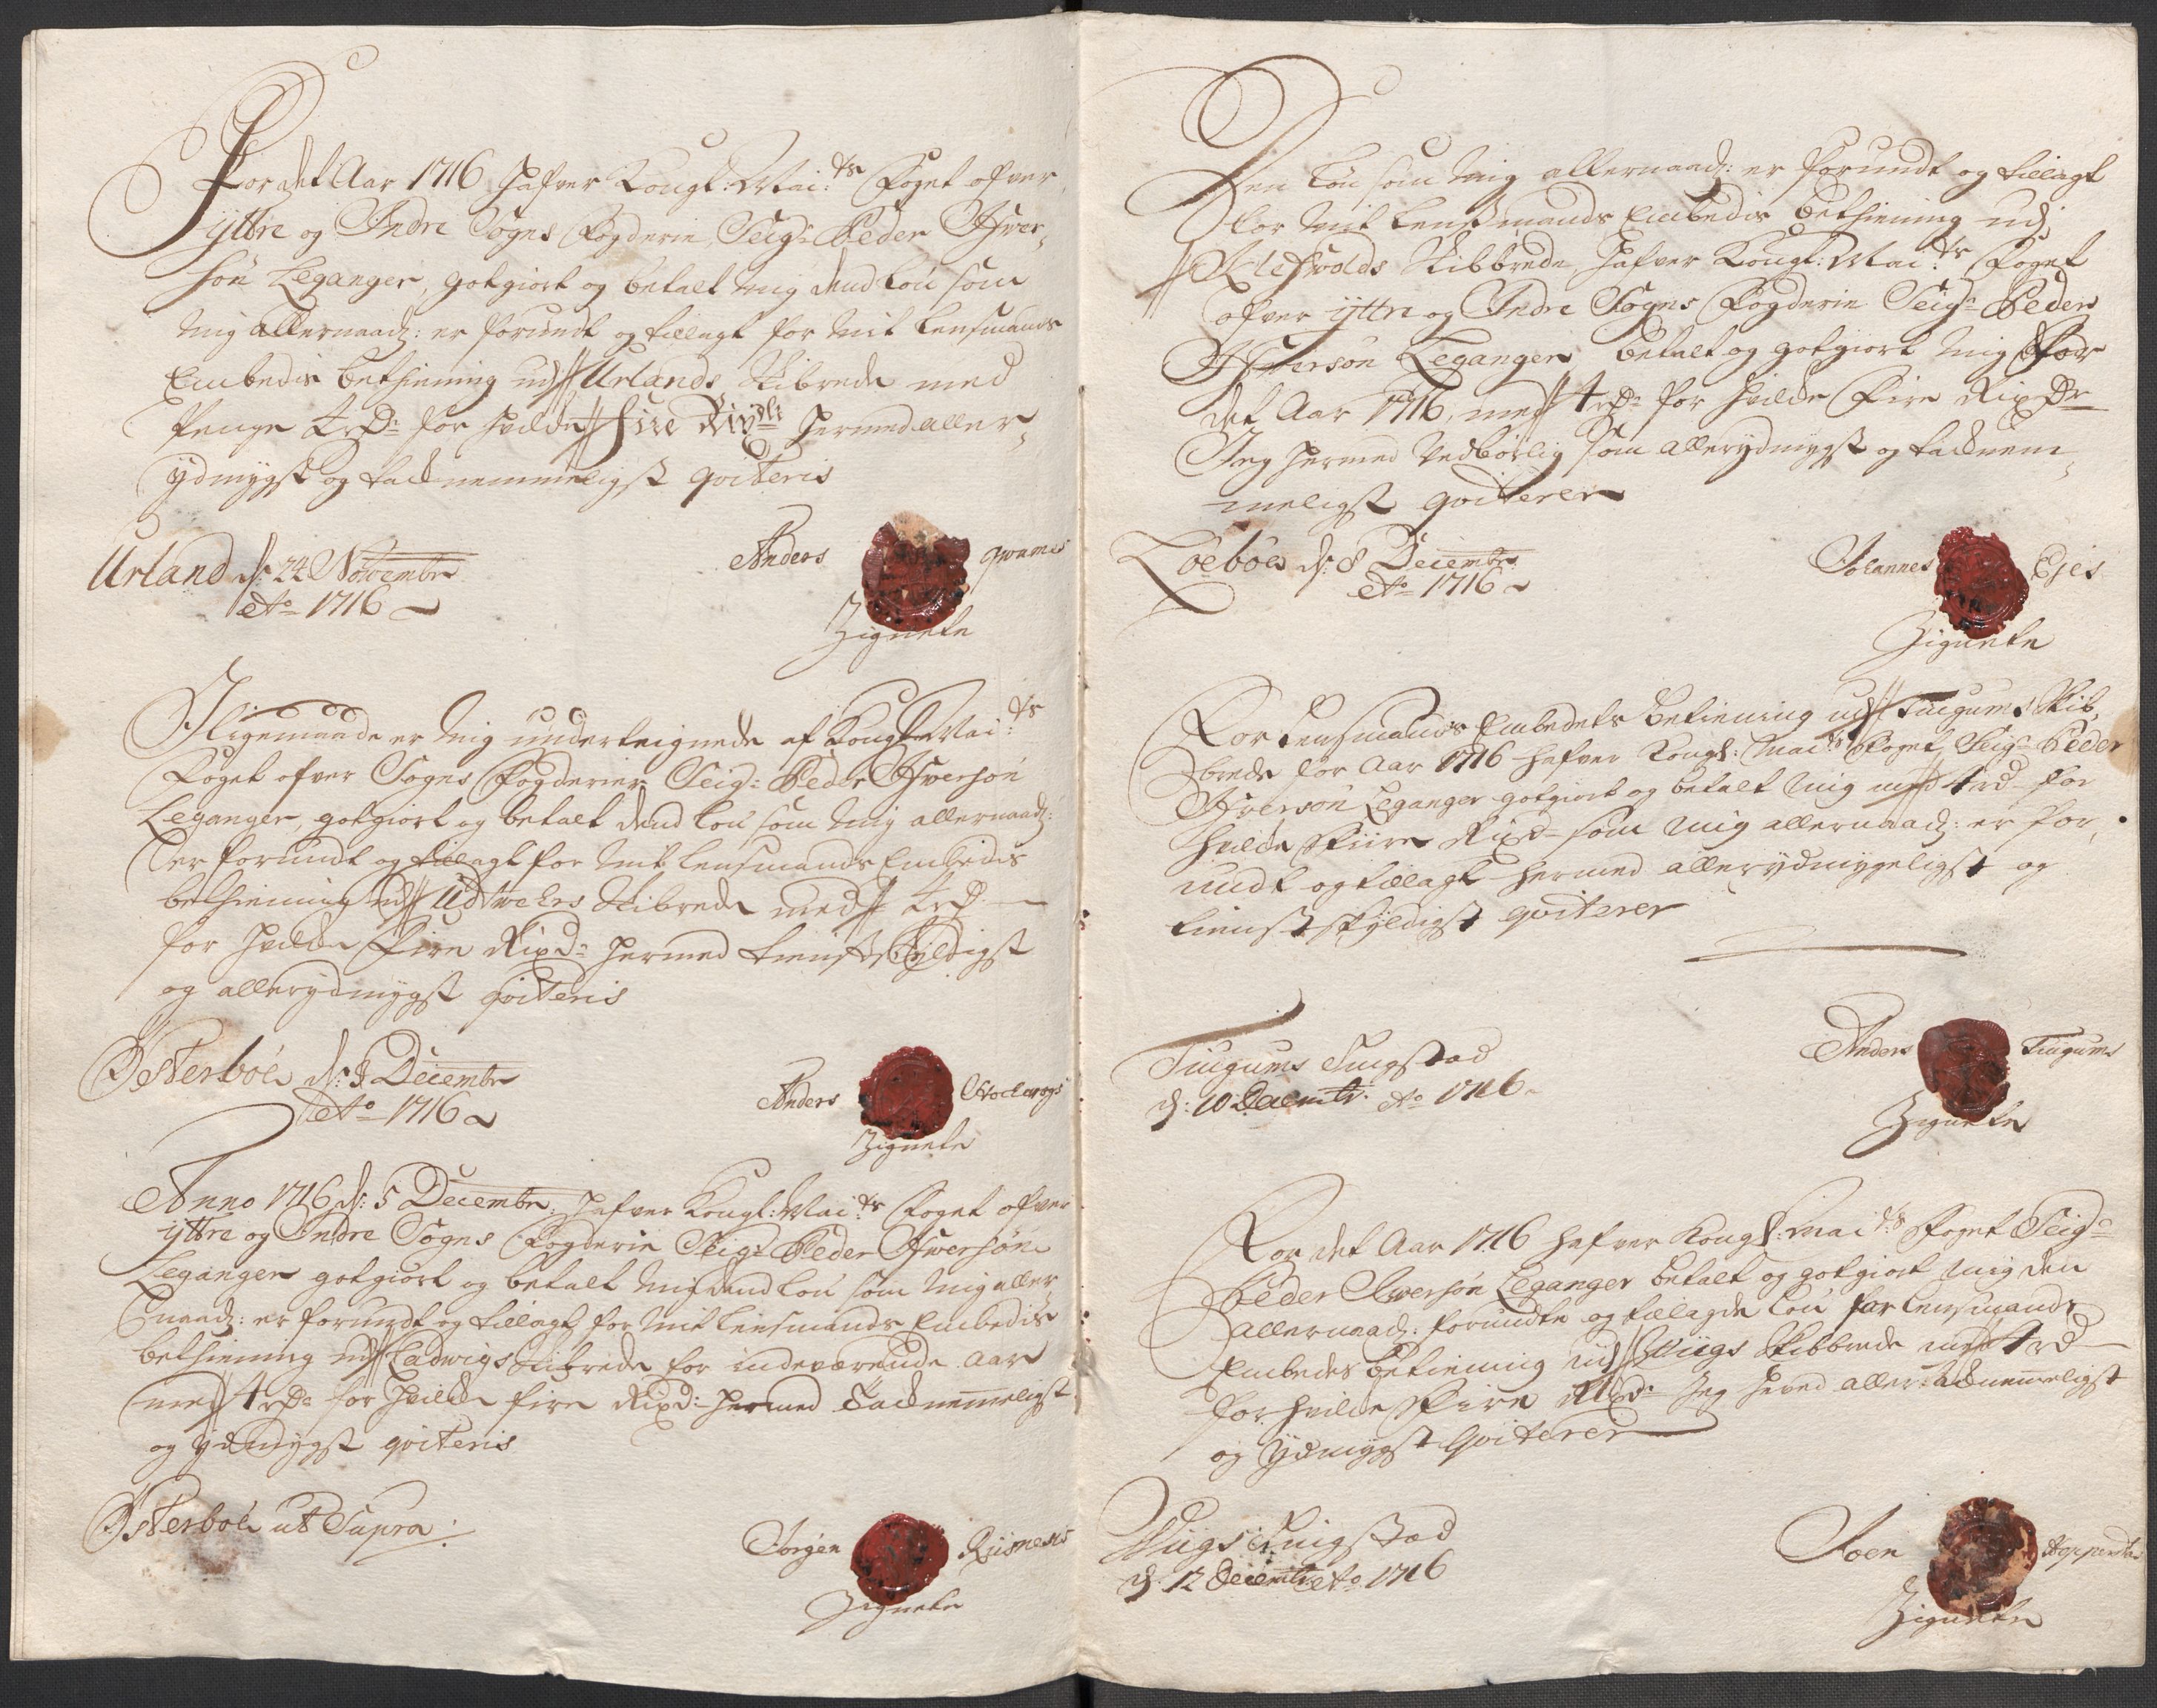 For det Aar 1716 hafver Kongl: Mai:ts Foget ofver
yttre og Indre Sogns Fogderie, Seig:r Peder Ifver,
søn Leganger, gotgiort og betalt mig dend Løn som
mig allernaad: er forundt og tillagt for mit Lensmands
Embedis bethiening ud Urlands Skibrede med
Penge 4 rD: for hvilde Fire Rixdl: hermed aller,
ydmygst og tacknemmeligst qviteris
Urland d: 24 Novembr
Ao 1716
Anders
Zignete
Iligemaade er mig underteignede af Kongl Mai:ts
Foget ofver Sogns Fogderier Seig: Peder Ifversøn
Leganger, gotgiort og betalt dend Løn som mig allernaad:
er forundt og tillagt for mit Lensmands Embedis
bethiening ud Udwehrs Skibrede med 4 rD
for hvilde Fire Rixd: hermed tienstskyldigst
og allerydmygst qviteris
Østerboe d: 3 Decembr
Ao 1716
Anders
Zignete
Anno 1716 d: 5 Decembr: hafver Kongl: Mai:ts Foget ofver
yttre og Indre Sogns Fogderie Seig: Peder Ifversøn
Leganger gotgiort og betalt mig dend Løn som mig aller,
naad: er forundt og tillagt for mit Lensmands Embedis
bethiening ud Ladwigs Skibrede for indeværende Aar
med 4 rD: for hvilde fire Rixd: hermed tacknemmeligst
og ydmygst qviteris
Østerboe ut Supra:
Jørgen Riisnesis
Zignete
Den Løn som mig allernaad: er forundt og tillagt
for mit Lensmands Embedis bethiening udj
Klefvolds Skibbrede hafver Kongl: Mai:ts Foget
ofver yttre og Indre Sogns Fogderie Seigr Peder
Ifversøn Leganger betalt og gotgiort mig for
det Aar 1716, med 4 rD: for hvilde Fire RixDr
Jeg hermed vedbørlig som allerydmygst og tacknem,
meligst qviterer
Løeboe d: 8 Decembr
Ao 1716
Johannes Ejes
Zignete
For Lensmands Embedets betiening ud Tuigums Skib,
brede for Aar 1716 hafver Kongl: Mai:ts Foget Seigr Peder
Ifversøn Leganger gotgiort og betalt mig med 4 rd for
hvilde Fiire Rixd som mig allernaad: er for,
undt og tillagt hermed allerydmygeligst og
tienstskyldigst qviterer
Tuigums Tingstæd
d: 10 Decembr: Ao 1716
Anders Tuigums
Zignete
For det Aar 1716 hafver Kongl: Mai:ts Foget Seigr
Peder Ifversøn Leganger betalt og gotgiort mig den
allernaad: forundte og tillagde Løn for Lensmands
Embedes betiening ud Wiigs Skibbrede med 4 rd
for hvilde Fire Rixd: Jeg herved allertacknemmeligst
og ydmygst qviterer
Wiigs Tingstæd
d. 12 Decembr Ao 1716
Joen
Zignete